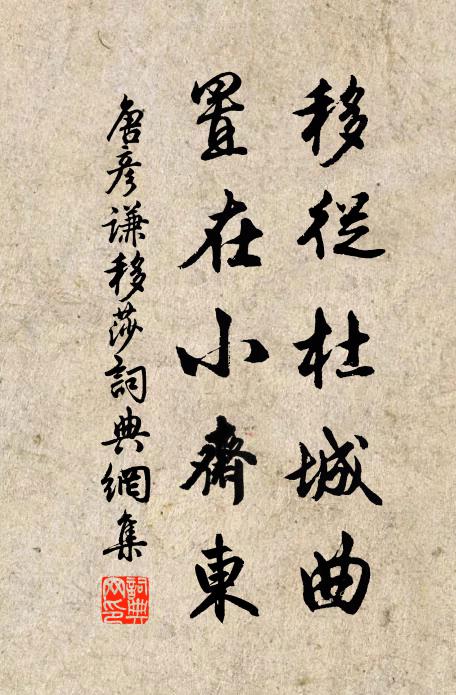 移從杜城曲
置在小齋東
唐彥謙移莎詞典網集
詞典网印